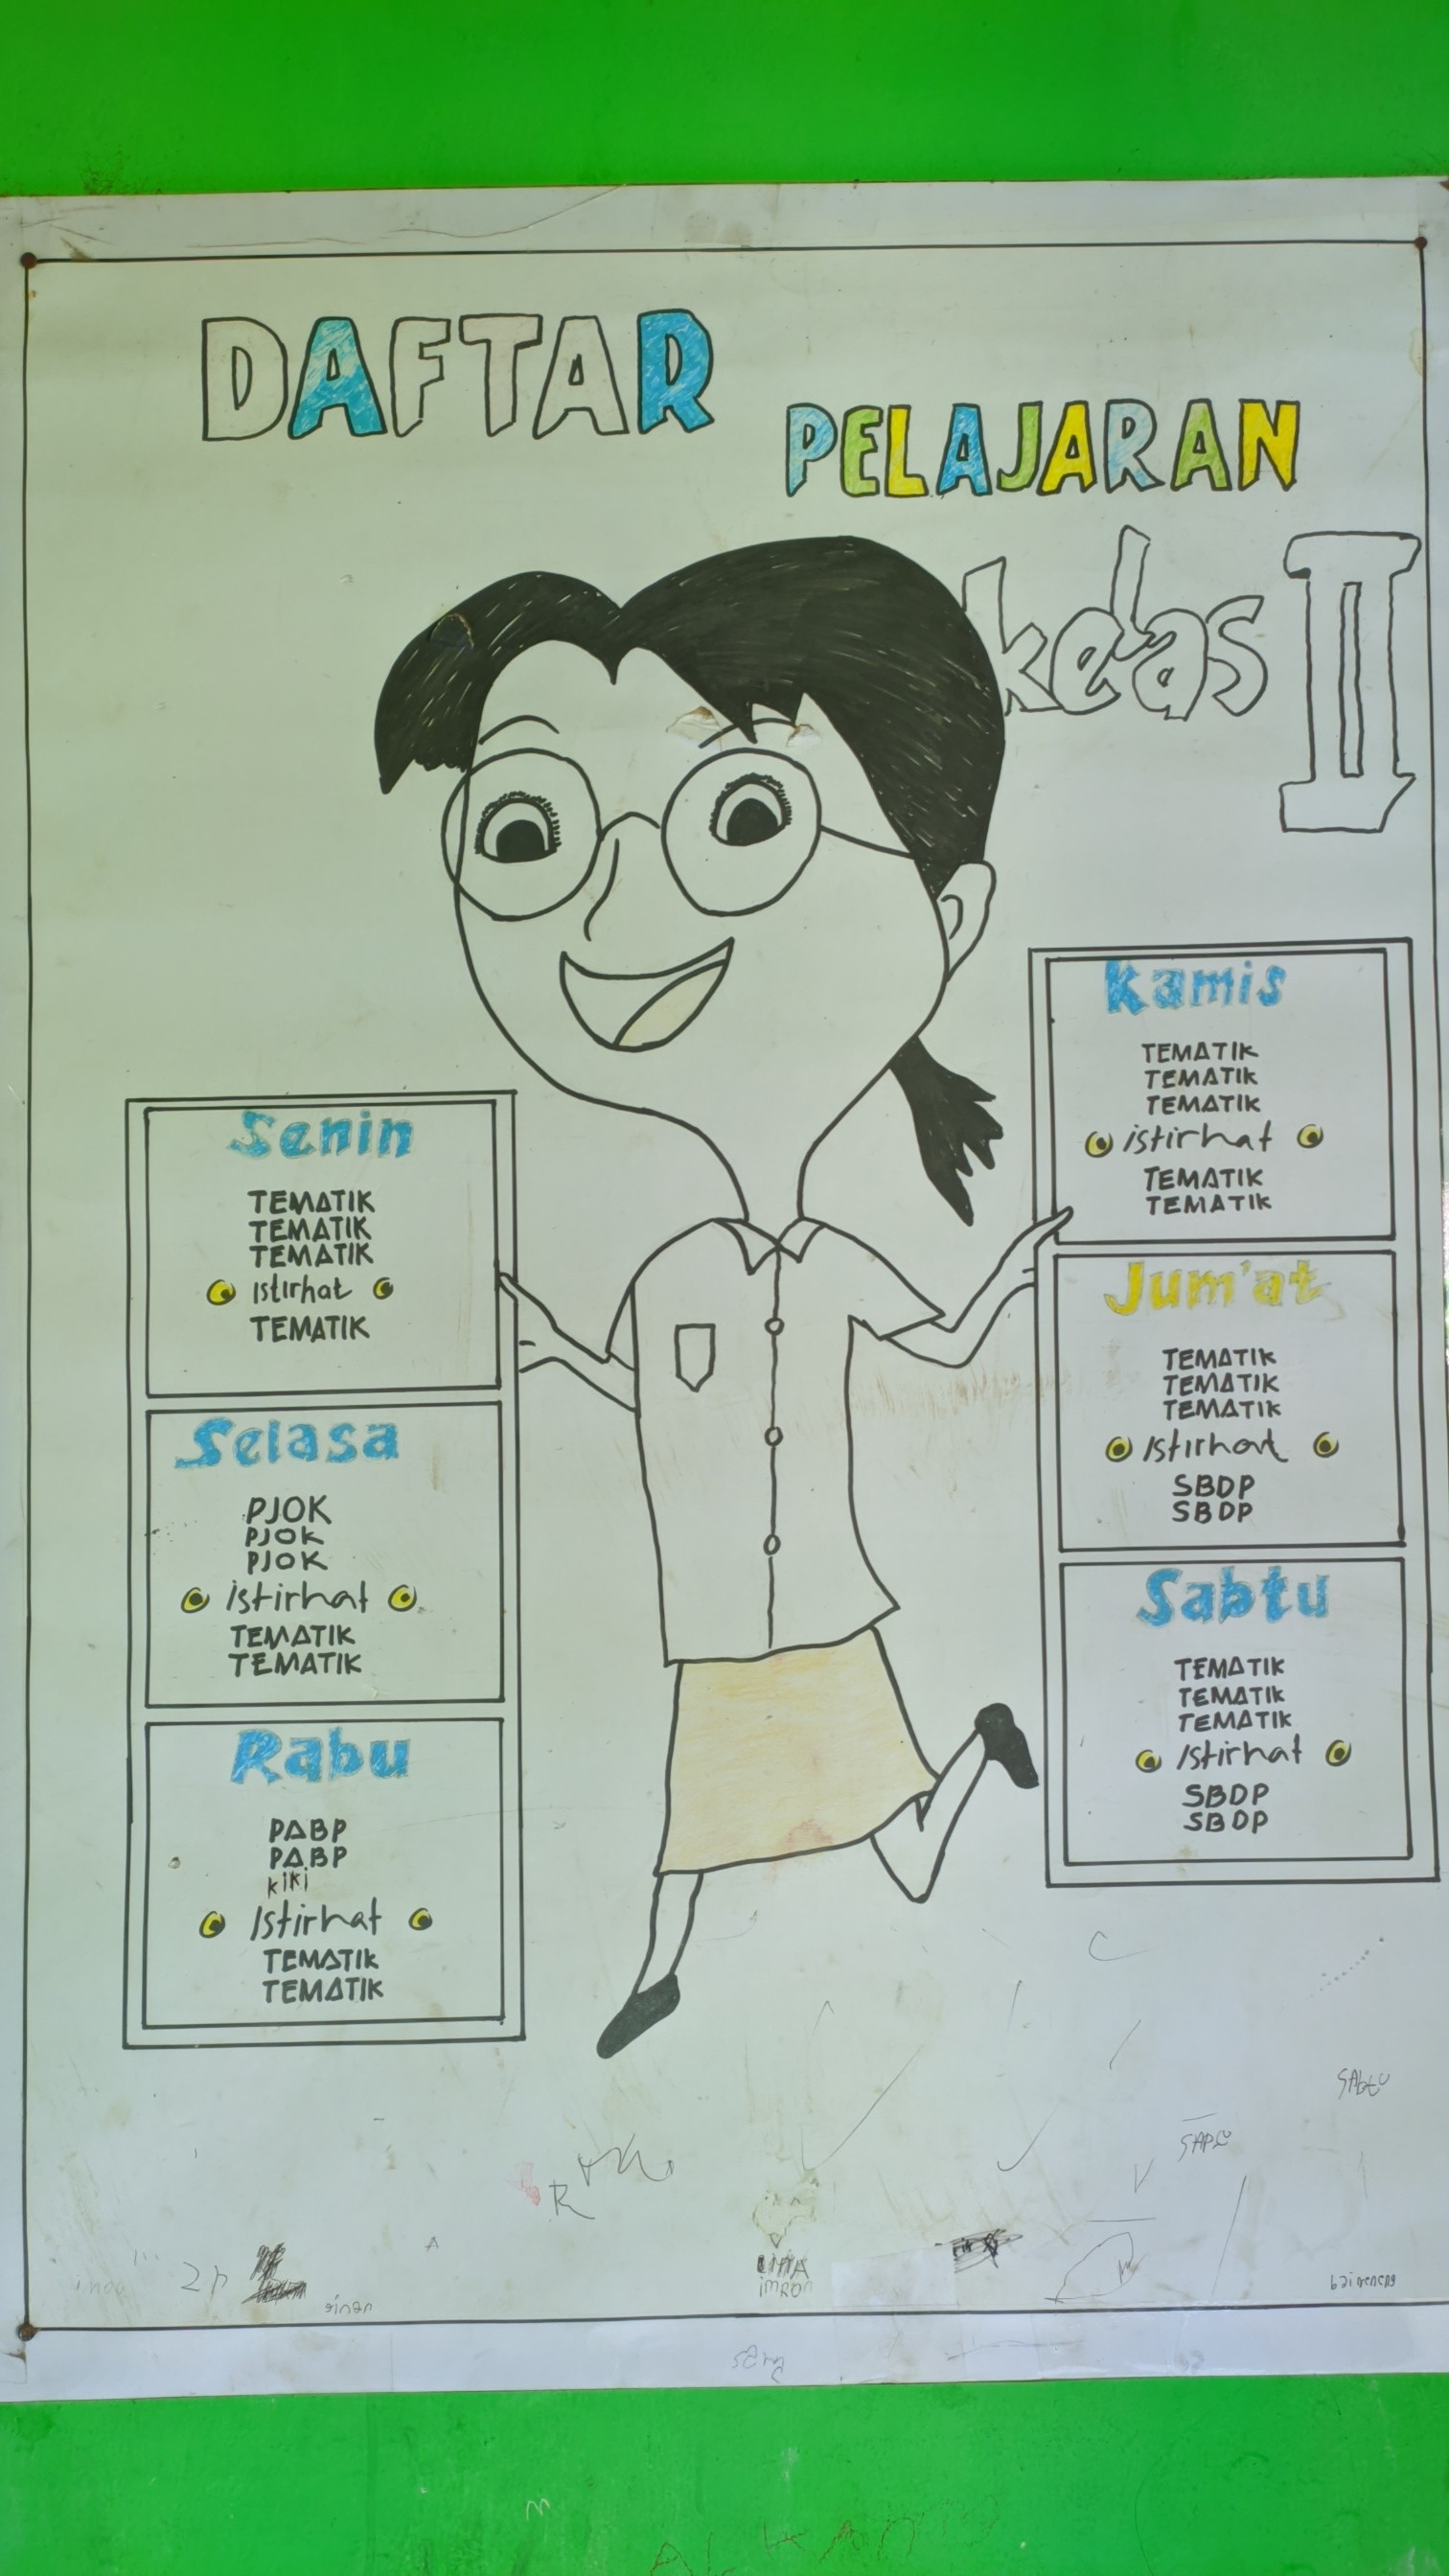 DAFTAR
PELAJARAN
kelas II
Senin
TEMATIK
TEMATIK
TEMATIK
Istirhat
TEMATIK
Selasa
PJOK
PJOK
PJOK
istirhat
TEMATIK
TEMATIK
Rabu
PABP
PABP
kiki
Istirhat
TEMATIK
TEMATIK
Kamis
TEMATIK
TEMATIK
TEMATIK
istirhat
TEMATIK
TEMATIK
Jum'at
TEMATIK
TEMATIK
TEMATIK
Istirhat
SBDP
SBDP
Sabtu
TEMATIK
TEMATIK
TEMATIK
Istirhat
SBDP
SBDP
SAbtU
R
imRon